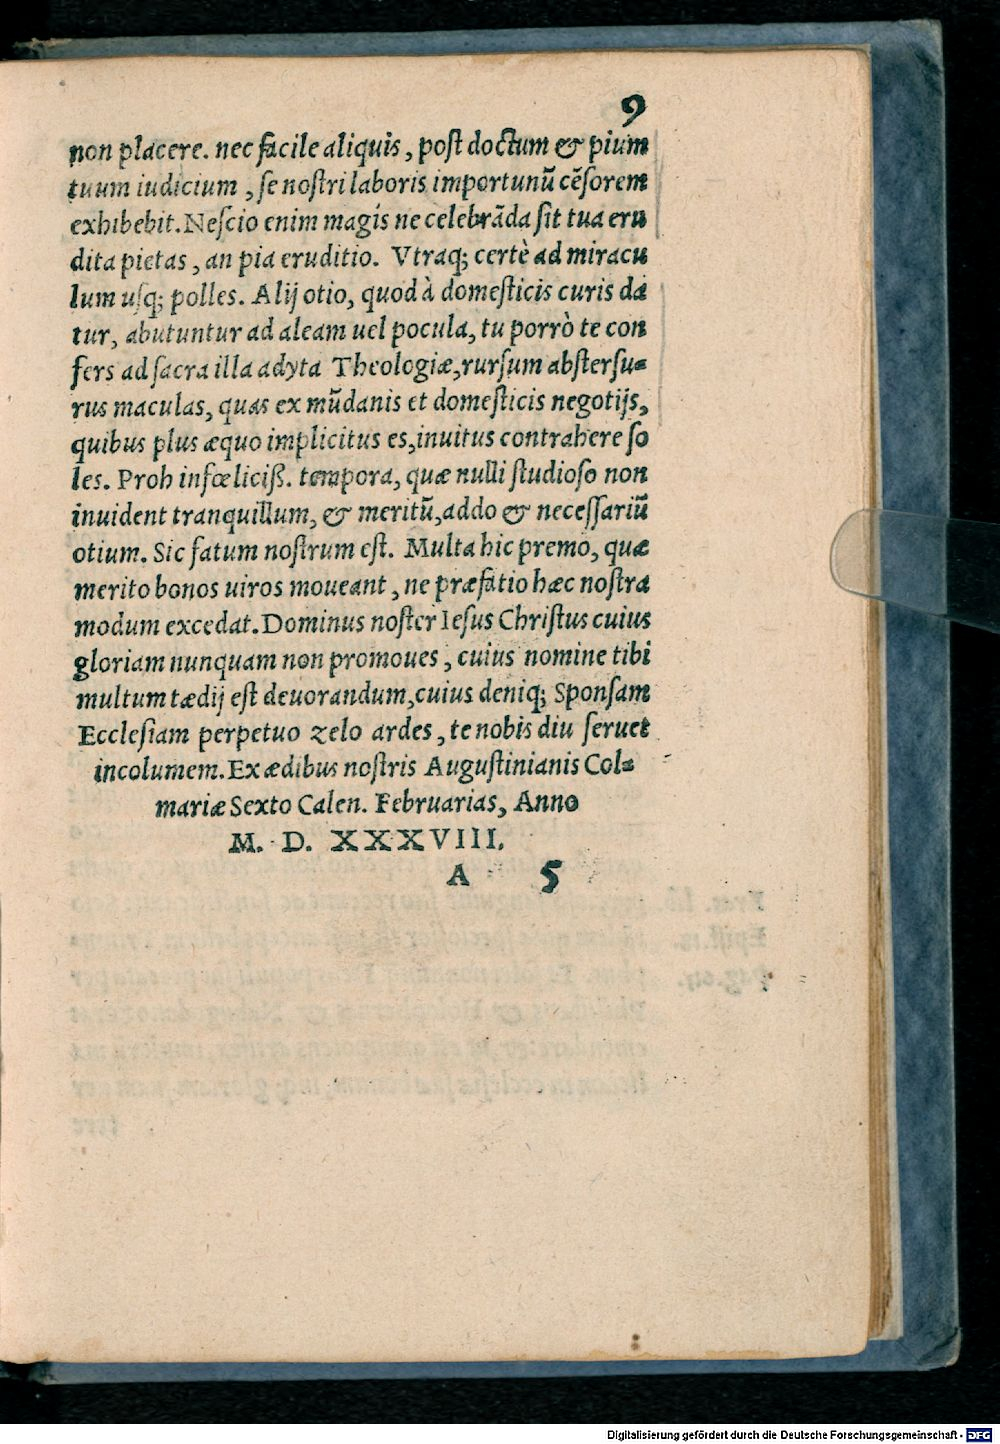 9
non placere. nec facile aliquis, post doctum & pium
tuum iudicium, se nostri laboris importunū cēsorem
exhibebit. Nescio enim magis ne celebrāda sit tua eru
dita pietas, an pia eruditio. Vtraq; certè ad miracu
lum usq; polles. Alij otio, quod à domesticis curis da
tur, abutuntur ad aleam uel pocula, tu porrò te con
fers ad sacra illa adyta Theologiæ, rursum abstersu=
rus maculas, quas ex mūdanis et domesticis negotijs,
quibus plus æquo implicitus es, inuitus contrahere so
les. Proh infœliciß. tempora, quæ nulli studioso non
inuident tranquillum, & meritū, addo & necessariū
otium. Sic fatum nostrum est. Multa hic premo, quæ
merito bonos uiros moueant, ne præfatio hæc nostra
modum excedat. Dominus noster Iesus Christus cuius
gloriam nunquam non promoues, cuius nomine tibi
multum tædij est deuorandum, cuius deniq; Sponsam
Ecclesiam perpetuo zelo ardes, te nobis diu seruet
incolumem. Ex ædibus nostris Augustinianis Col=
mariæ Sexto Calen. Februarias, Anno
M. D. XXXVIII.
A 5
Digitalisierung gefördert durch die Deutsche Forschungsgemeinschaft - DFG